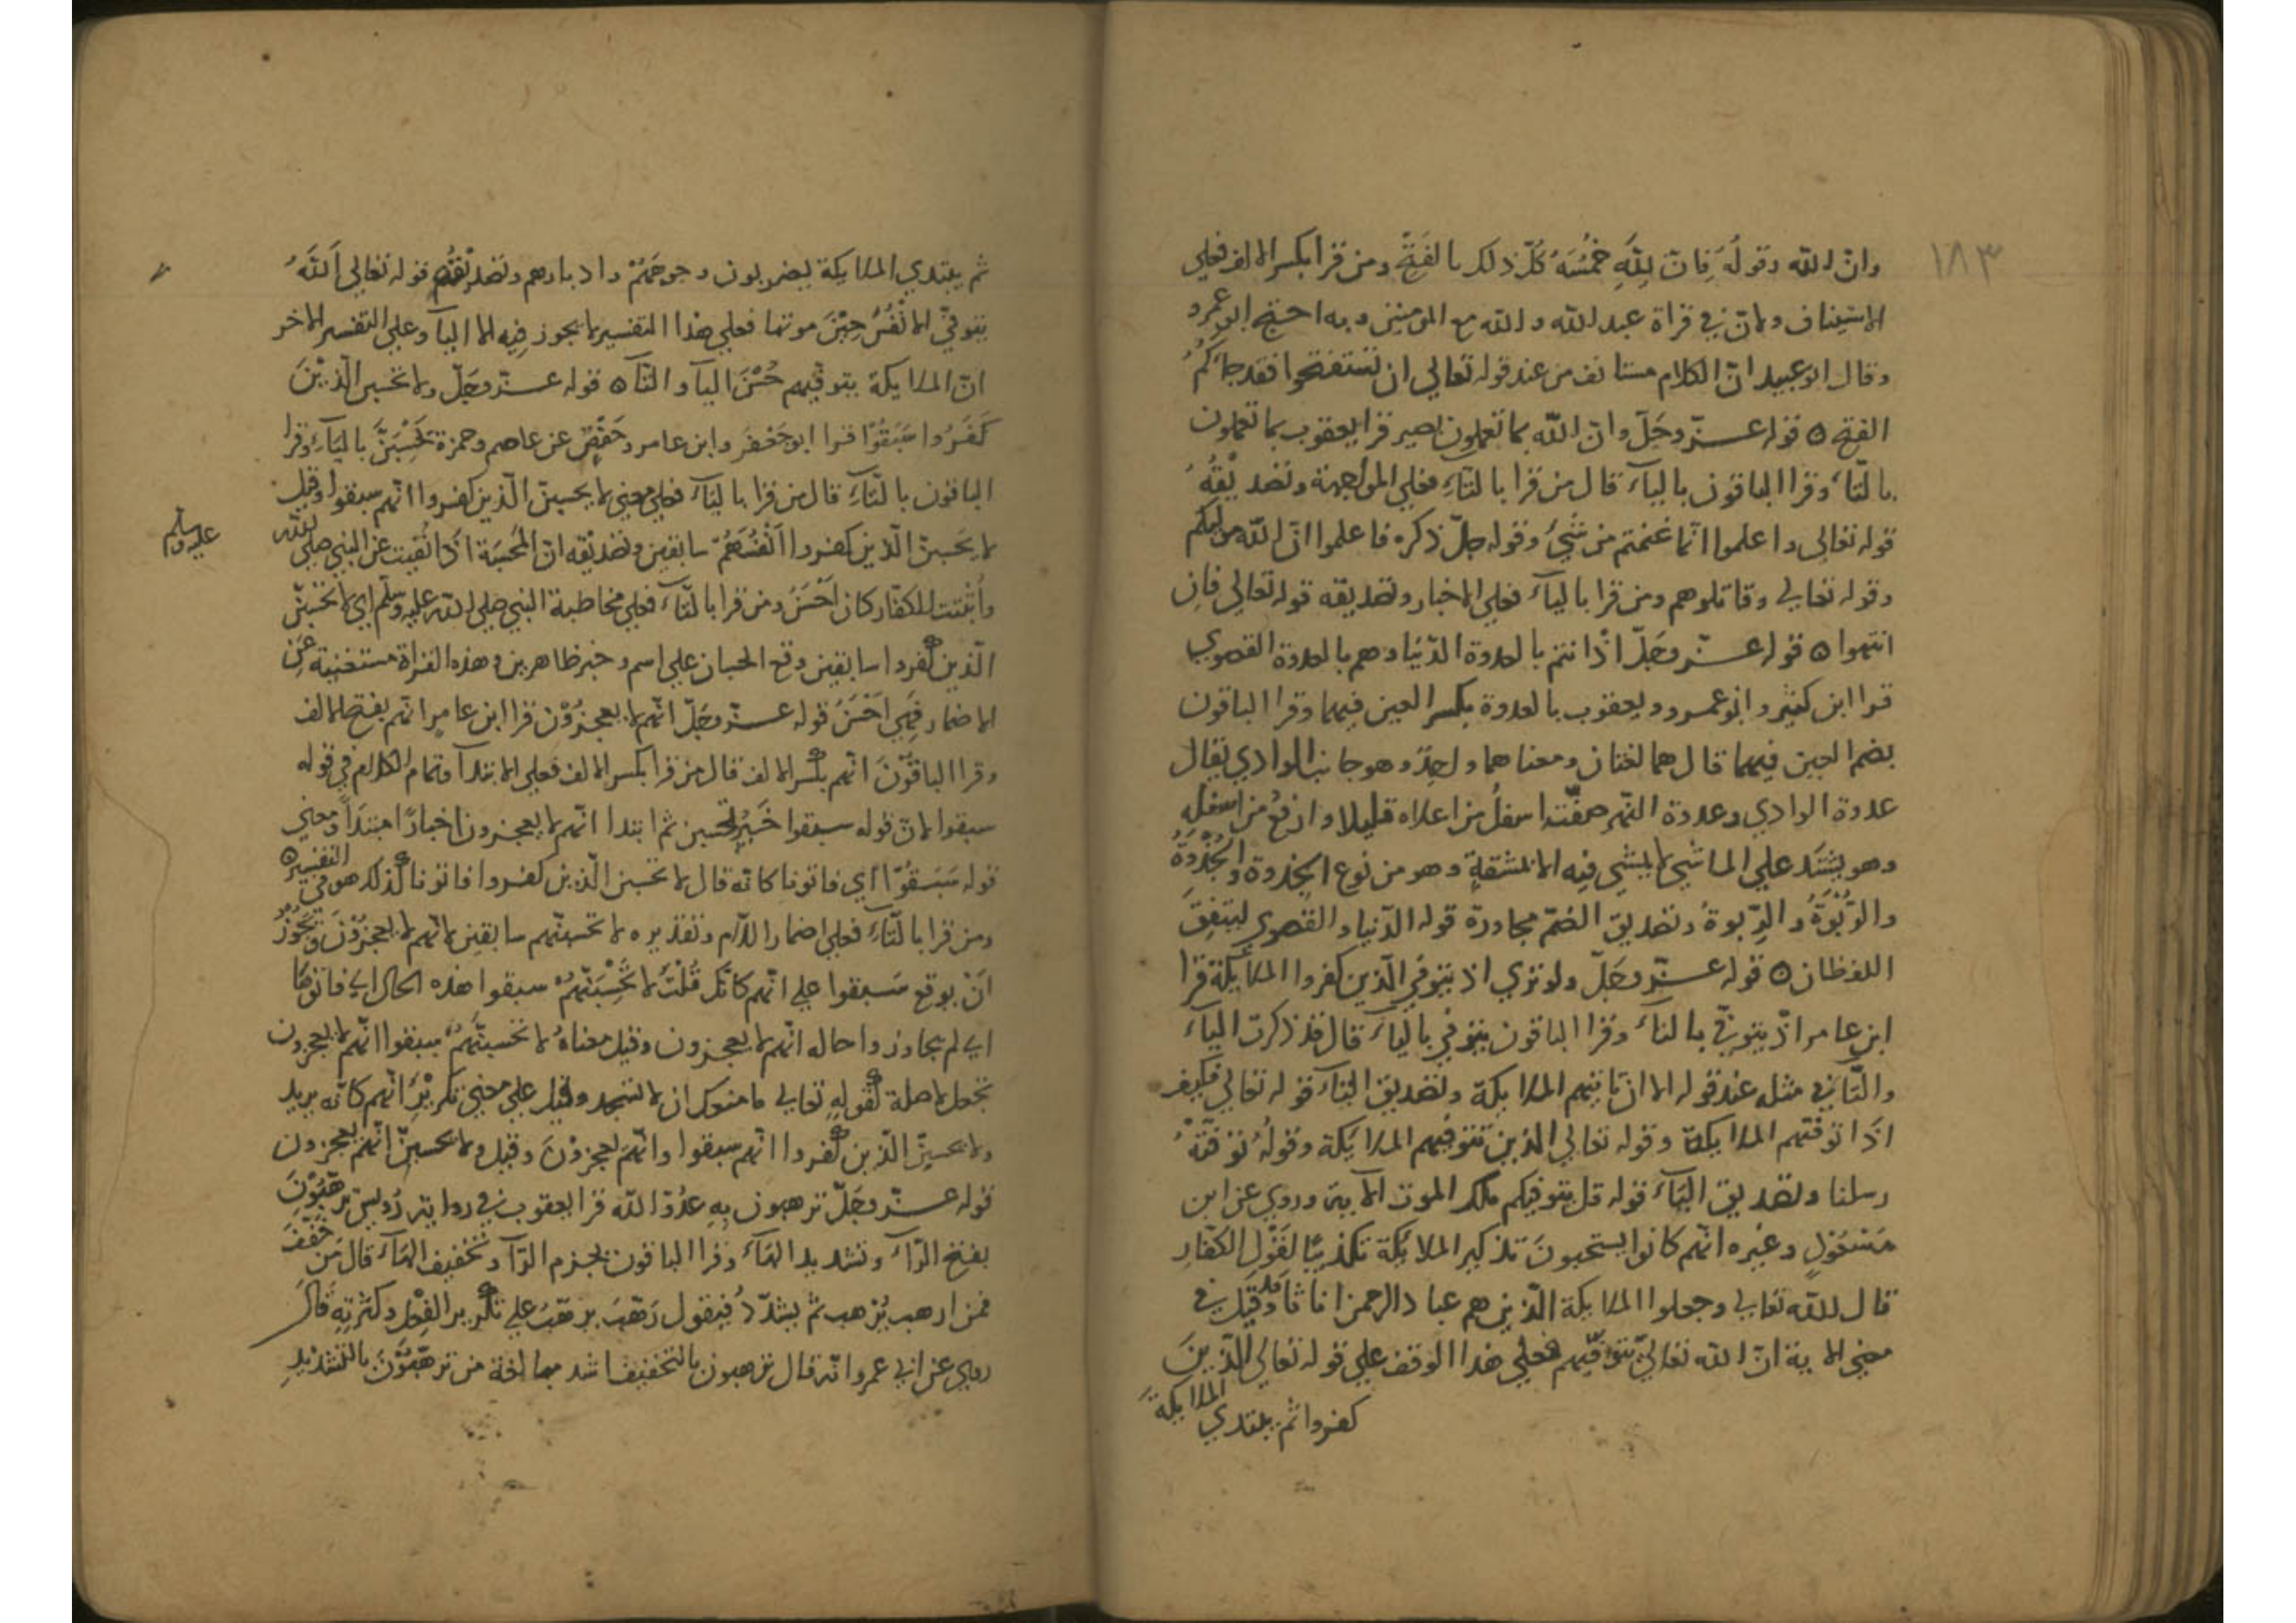 ١٨٣
وانّ الله وقولُه فِانّ لِلّهِ خُمُسَهُ كُلّ ذلك بالفَتحِ ومن قرا بكسر الالف فعلي
الاستيناف ولانّ في قراة عبد الله والله مع المومنين وبه احتج ابو عمرو
وقال ابو عبيد انّ الكلام مستانف من عند قوله تعالي ان تستفتحوا فقد جاءَكُمُ
الفتح ٥ قوله عــزّ وجَلّ وانّ الله بما تعملون بصير قرا يعقوب بما تعملون
بالتّاءِ وقرا الباقون بالياءَ قال من قرا بالتّاءِ فعلي المواجهة وتصديقُهُ
قوله تعالي واعلموا انّما غنمتم من شيءٍ وقوله جلّ ذكره فاعلموا انّ الله موليكم
وقوله تعالي وقاتلوهم ومن قرا بالياءَ فعلي الاخبار وتصديقه قوله تعالي فاِن
انتهوا ٥ قوله عــزّ وجَلّ اذْ انتم بالعدوة الدّنيا وهم بالعدوة القصوي
قرا ابن كثير وابو عمرو ويعقوب بالعدوة بكسر العين فيهما وقرا الباقون
بضم العين فيهما قال هما لغتان ومعناهما واحِدٌ وهو جانب الوادي يقال
عدوة الوادي وعدوة النّهر صفّته اسفلُ من اعلاه قليلا وارفعُ من اسفلِهِ
وهو يشتد علي الماشي لا يمشي فيه الا بمشقةٍ وهو من نوع الجِذوة والجُذْوَةُ
والرُّبْوَةُ والرِّبوةُ وتصديق الضّمّ مجاورة قوله الدّنيا والقصوي ليتفِقَ
اللفظان ٥ قوله عــزّ وجَلّ ولو تري اذ يتوفّي الّذين كفروا الملائكة قرا
ابن عامر اذْ يتوفّي بالتاءَ وقرا الباقون يتوفّي بالياءَ قال قد ذكرت الياءَ
والتّاءَ في مثله عند قوله الا ان تاتيهم الملائكة وتصديق التاءَ قوله تعالي فكيف
اذا توفتهم الملائكة وقوله تعالي الذين تتوفّيهم الملائكة وقولُهُ توفتْهُ
رسلنا وتصديق الياءَ قوله قل يتوفيكم ملك الموت الآية وروي عن ابن
مَسْعُوْدٍ وغيره انّهم كانوا يستحبونَ تذكير الملائكة تكذيبًا لِقَوْلِ الكفّارِ
قال الله تعالي وجعلوا الملائكة الّذين هم عباد الرحمن اناثًا وقد قِيْلَ في
معني الآية انّ الله تعالي يتوفّيهم فعلي هذا الوقف علي قوله تعالي الّذينَ
كفروا ثم يبتدي الملائكةُ
ثم يبتدي الملائكة يضربون وجوههُمْ وادبارهم وتصديْقُهُ قوله تعالي اَللّهُ
يتوفّي الاَنْفُسَ حِيْنَ موتها فعلي هذا التفسير لا يجوز فِيه الا الياَ وعلي التفسير الاخر
انّ الملائكة يتوفّيهم حُسْنَ الياَ والتّاَ ٥ قوله عــزّ وجَلّ ولا تحسبن الّذيْنَ
كَفَرُوا سَبَقُوْا قرا ابو جَعْفَر وابن عامر وحَفْصٌ عن عاصم وحمزة يَحْسِبَنَّ بالياءِ وقرا
الباقون بالتّاءِ قال من قرا بالياءَ فعلي معني لا يحسبنّ الّذين كفروا انّهم سبقوا وقيل
لا يحسبنّ الّذين كفروا اَنْفُسَهُمْ سابقين وتصديقه انّ المُحْسَبَة اذا نُفيت عن النبي صلي الله
عليه وسلم
وأُثبتت للكفّار كان اَحْسَنَ ومن قرا بالتّاءَ فعلي مخاطبة النبي صلي الله عليه وسلّم اي لا تحسبنّ
الّذين كفروا سابقين وقع الحسبان علي اسم وخبر ظاهرين وهذه القراة مستغنية عَنِ
الاضمار فهِي اَحْسَنُ قوله عــزّ وجَلّ انّهم لا يعجزُوْن قرا ابن عامر انّهم بفتح الالف
وقرا الباقُوْنَ انّهم بكسر الالف قال من قرا بكسر الالف فعلي الابتداَ وتمام الكلام في قوله
سبقوا لانّ قوله سبقوا خَبَرٌ لتحسبن ثم ابتدا انّهم لا يعجزون اخبارًا مبتداً ومعني
قوله سَبَقُوْا اي فاتونا كانّه قال لا تحسبن الّذين كفروا فاتونا كذلك هو في التفسير ٥
ومن قرا بالتّاءِ فعلي اضمار اللّام وتقديره لا تحسبنّهم سابقين لانّهم لا يعجزُوْنَ ويَجُوْزُ
اَنْ يوقع سَبقوا علي انّهم كانّك قُلْتَ لا تَحْسِبَنّهُمْ سبقوا هذه الحال اي فاتوها
اي لم يجاوزوا حاله انّهم لا يعجزون وقيل معناهُ لا تحسبنّهُمْ سبقوا انّهم لا يعجزون
تجعل لا صلة كقولِهِ تعالي ما منعك ان لا تسجد وقيل علي معني تكريْرِ انّهم كانّه يريد
ولا تحسبنّ الّذين كفروا انّهم سبقوا وانّهم يعجزُوْنَ وقيل ولا تحسبنّ انّهم يعجزون
قوله عــزّ وجَلّ ترهبون بِهِ عَدُوّ الله قرا يعقوب في رواية رُويس تُرهّبُوْنَ
بفتح الرّاءَ وتشديد الهاءَ وقرا الباقون بجزم الرّاَ وتخفيف الهاءَ قال مَن خَفّفَ
فمن ارهب يُرهب ثم يشدّدُ فيقول رَهّبَ يرهّبُ علي تكرير الفِعْلِ وكثرتِهِ قالَ
روي عن ابي عمرو انّه قال ترهبون بالتخفيف اشد مبالغة من ترهّبُوْنَ بالتشديدِ